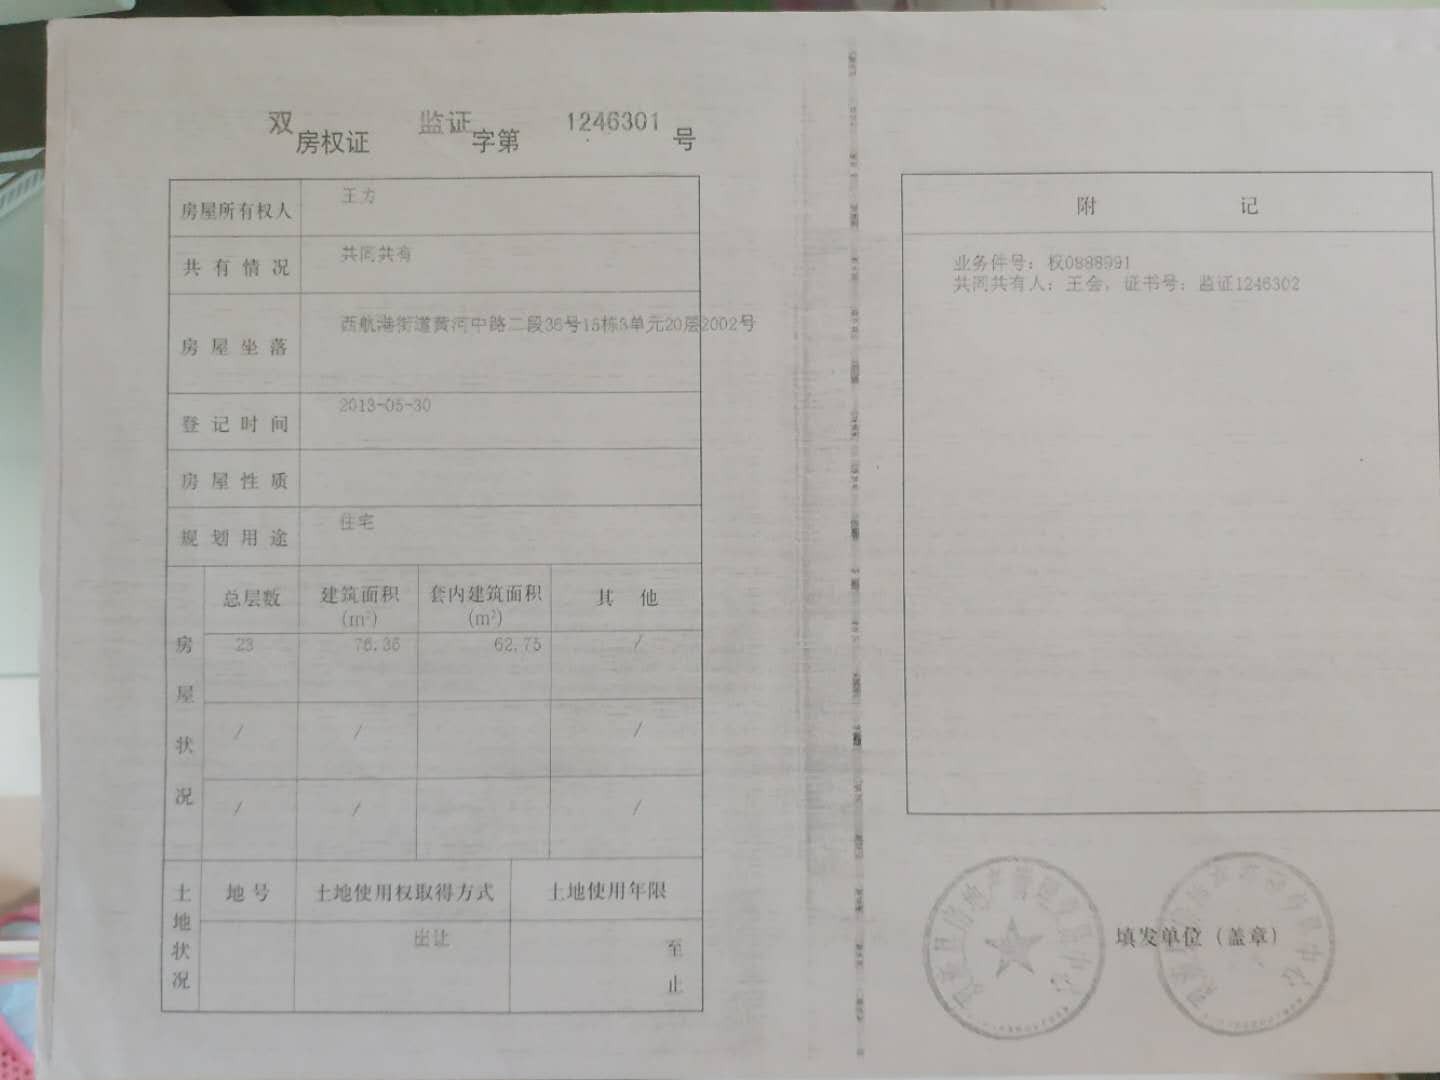 双房权证 监证字第 1246301 号
房屋所有权人 王力
共有情况 共同共有
房屋坐落 西航港街道黄河中路二段36号15栋3单元20层2002号
登记时间 2013-05-30
房屋性质
规划用途 住宅
房屋状况
总层数 建筑面积(m²) 套内建筑面积(m²) 其他
23 76.36 62.75 /
/ / /
/ / /
土地状况
地号 土地使用权取得方式 土地使用年限
出让 至
止
附记
业务件号：权0888991
共同共有人：王会，证书号：监证1246302
填发单位（盖章）